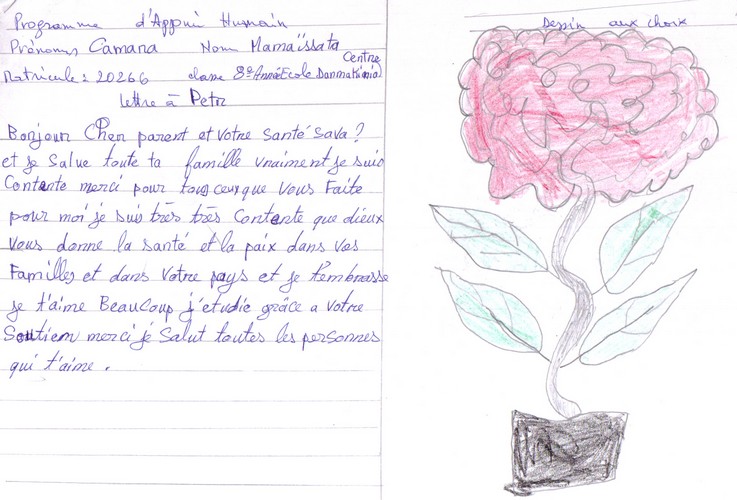 Programme d'Appui Humain
Prénoms Camana Nom Mamaïssata
Matricule: 20266 classe 8e Année Ecole Danmakania Centre
Lettre à Petr
Bonjour Cher parent et votre santé sava?
et je salue toute ta famille vraiment je suis
Contente merci pour tous ceux que vous faite
pour moi je suis très très contente que dieux
vous donne la santé et la paix dans vos
Familles et dans votre pays et je t'embrasse
je t'aime Beaucoup j'étudie grâce a votre
Soutien merci je salut toutes les personnes
qui t'aime.
Dessin aux choix